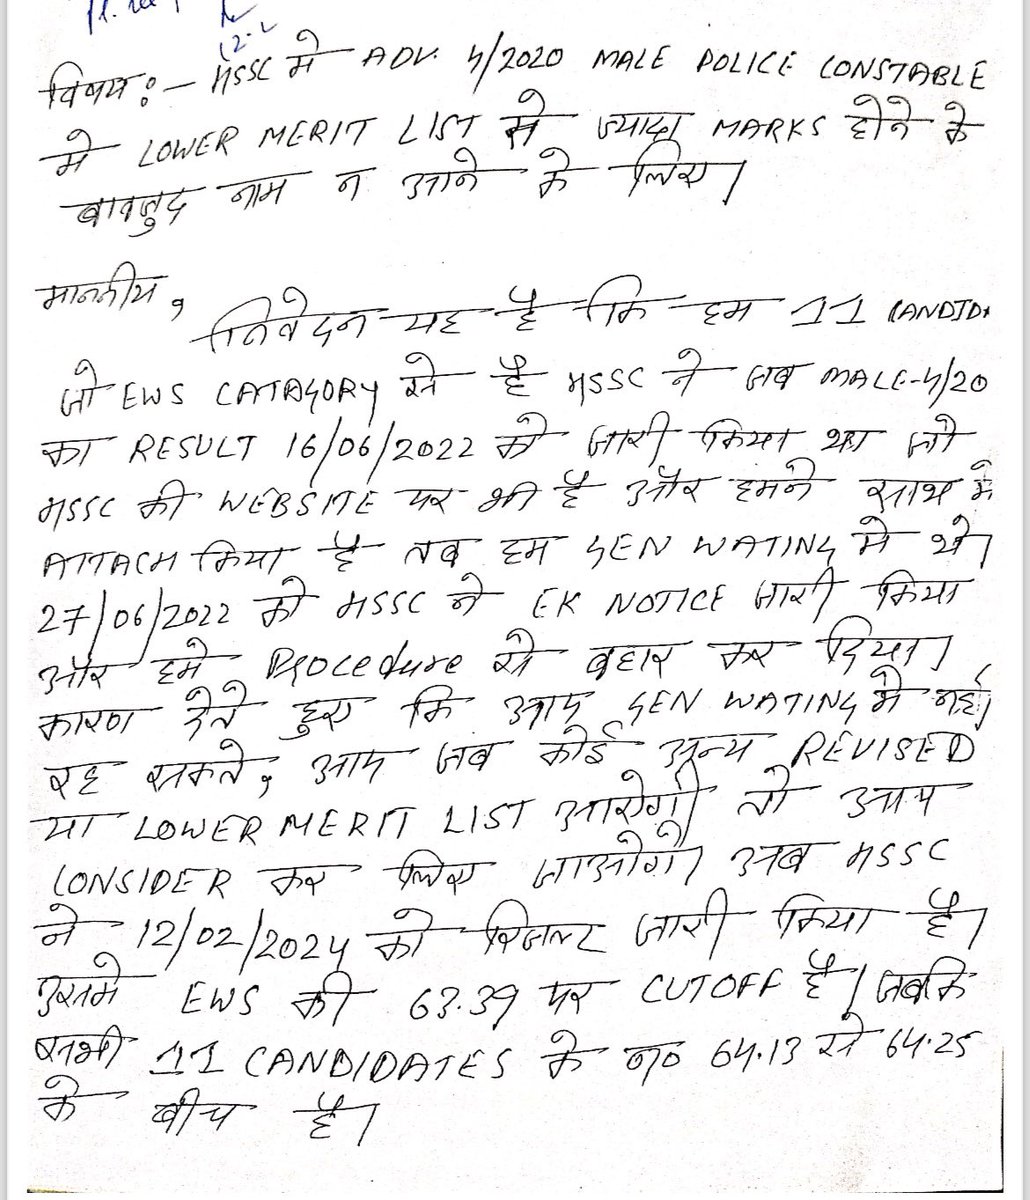 विषय:- HSSC मे ADV. 4/2020 MALE POLICE CONSTABLE
मे LOWER MERIT LIST से ज्यादा MARKS होने के
बावजुद नाम न आने के लिए।
माननीय,
निवेदन यह है कि हम 11 CANDID
जो EWS CATAGORY से है HSSC ने जब MALE-4/20
का RESULT 16/06/2022 को जारी किया था जो
HSSC की WEBSITE पर भी है और हमने साथ मे
ATTACH किया है तब हम GEN WATING मे थे।
27/06/2022 को HSSC ने EK NOTICE जारी किया
और हमे Procedure से बहार कर दिया।
कारण देते हुए कि आप GEN WATING मे नही
रह सकते, आप जब कोई अन्य REVISED
या LOWER MERIT LIST आएगी तो आप
CONSIDER कर लिए जाओगे। अब HSSC
ने 12/02/2024 को रिजल्ट जारी किया है।
उसमे EWS की 63.39 पर CUTOFF है। जबकि
सभी 11 CANDIDATES के न० 64.13 से 64.25
के बीच है।